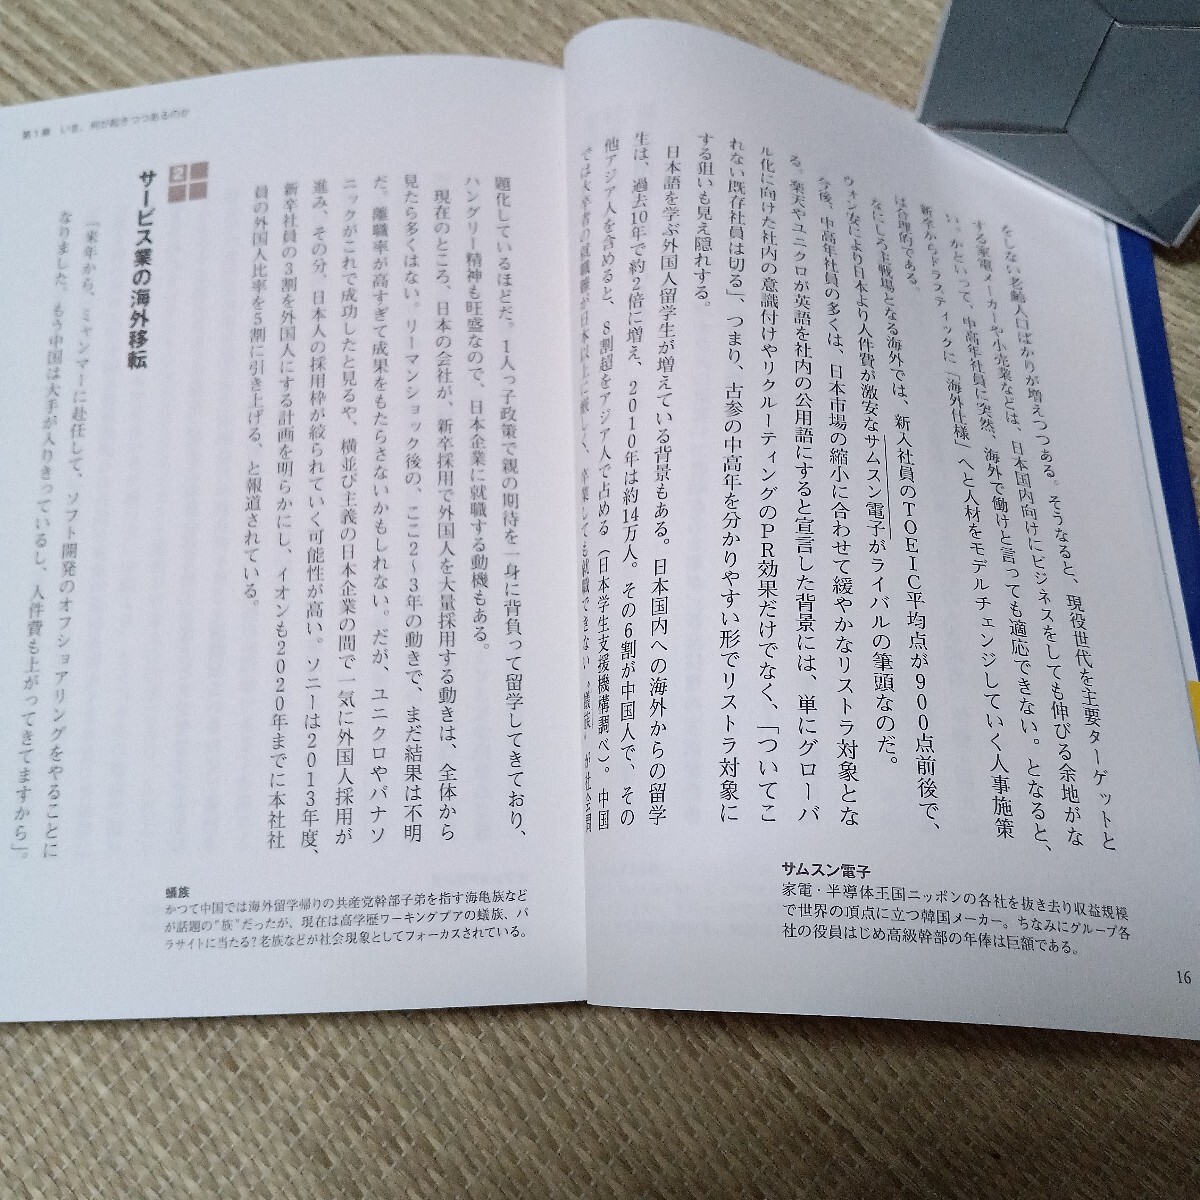 をしない老齢人口ばかりが増えつつある。そうなると、現役世代を主要ターゲットと
する家電メーカーや小売業などは、日本国内向けにビジネスをしても伸びる余地がな
い。かといって、中高年社員に突然、海外で働けと言っても適応できない。となると、
新卒からドラスティックに「海外仕様」へと人材をモデルチェンジしていく人事施策
は合理的である。
なにしろ主戦場となる海外では、新入社員のTOEIC平均点が900点前後で、
ウォン安により日本より人件費が激安なサムスン電子がライバルの筆頭なのだ。
今後、中高年社員の多くは、日本市場の縮小に合わせて緩やかなリストラ対象とな
る。楽天やユニクロが英語を社内の公用語にすると宣言した背景には、単にグローバ
ル化に向けた社内の意識付けやリクルーティングのPR効果だけでなく、「ついてこ
れない既存社員は切る」、つまり、古参の中高年を分かりやすい形でリストラ対象に
する狙いも見え隠れする。
日本語を学ぶ外国人留学生が増えている背景もある。日本国内への海外からの留学
生は、過去10年で約2倍に増え、2010年は約14万人。その6割が中国人で、その
他アジア人を含めると、8割超をアジア人で占める（日本学生支援機構調べ）。中国
では大卒者の就職難が日本以上に厳しく、卒業しても就職できない“蟻族”が社会問
サムスン電子
家電・半導体王国ニッポンの各社を抜き去り収益規模
で世界の頂点に立つ韓国メーカー。ちなみにグループ各
社の役員はじめ高級幹部の年俸は巨額である。
16
第1章 いま、何が起きつつあるのか
題化しているほどだ。1人っ子政策で親の期待を一身に背負って留学してきており、
ハングリー精神も旺盛なので、日本企業に就職する動機もある。
現在のところ、日本の会社が、新卒採用で外国人を大量採用する動きは、全体から
見たら多くはない。リーマンショック後の、ここ2〜3年の動きで、まだ結果は不明
だ。離職率が高すぎて成果をもたらさないかもしれない。だが、ユニクロやパナソ
ニックがこれで成功したと見るや、横並び主義の日本企業の間で一気に外国人採用が
進み、その分、日本人の採用枠が絞られていく可能性が高い。ソニーは2013年度、
新卒社員の3割を外国人にする計画を明らかにし、イオンも2020年までに本社社
員の外国人比率を5割に引き上げる、と報道されている。
2
サービス業の海外移転
「来年から、ミャンマーに赴任して、ソフト開発のオフショアリングをやることに
なりました。もう中国は大手が入りきっているし、人件費も上がってきてますから」。
蟻族
かつて中国では海外留学帰りの共産党幹部子弟を指す海亀族など
が話題の“族”だったが、現在は高学歴ワーキングプアの蟻族、パ
ラサイトに当たる?老族などが社会現象としてフォーカスされている。